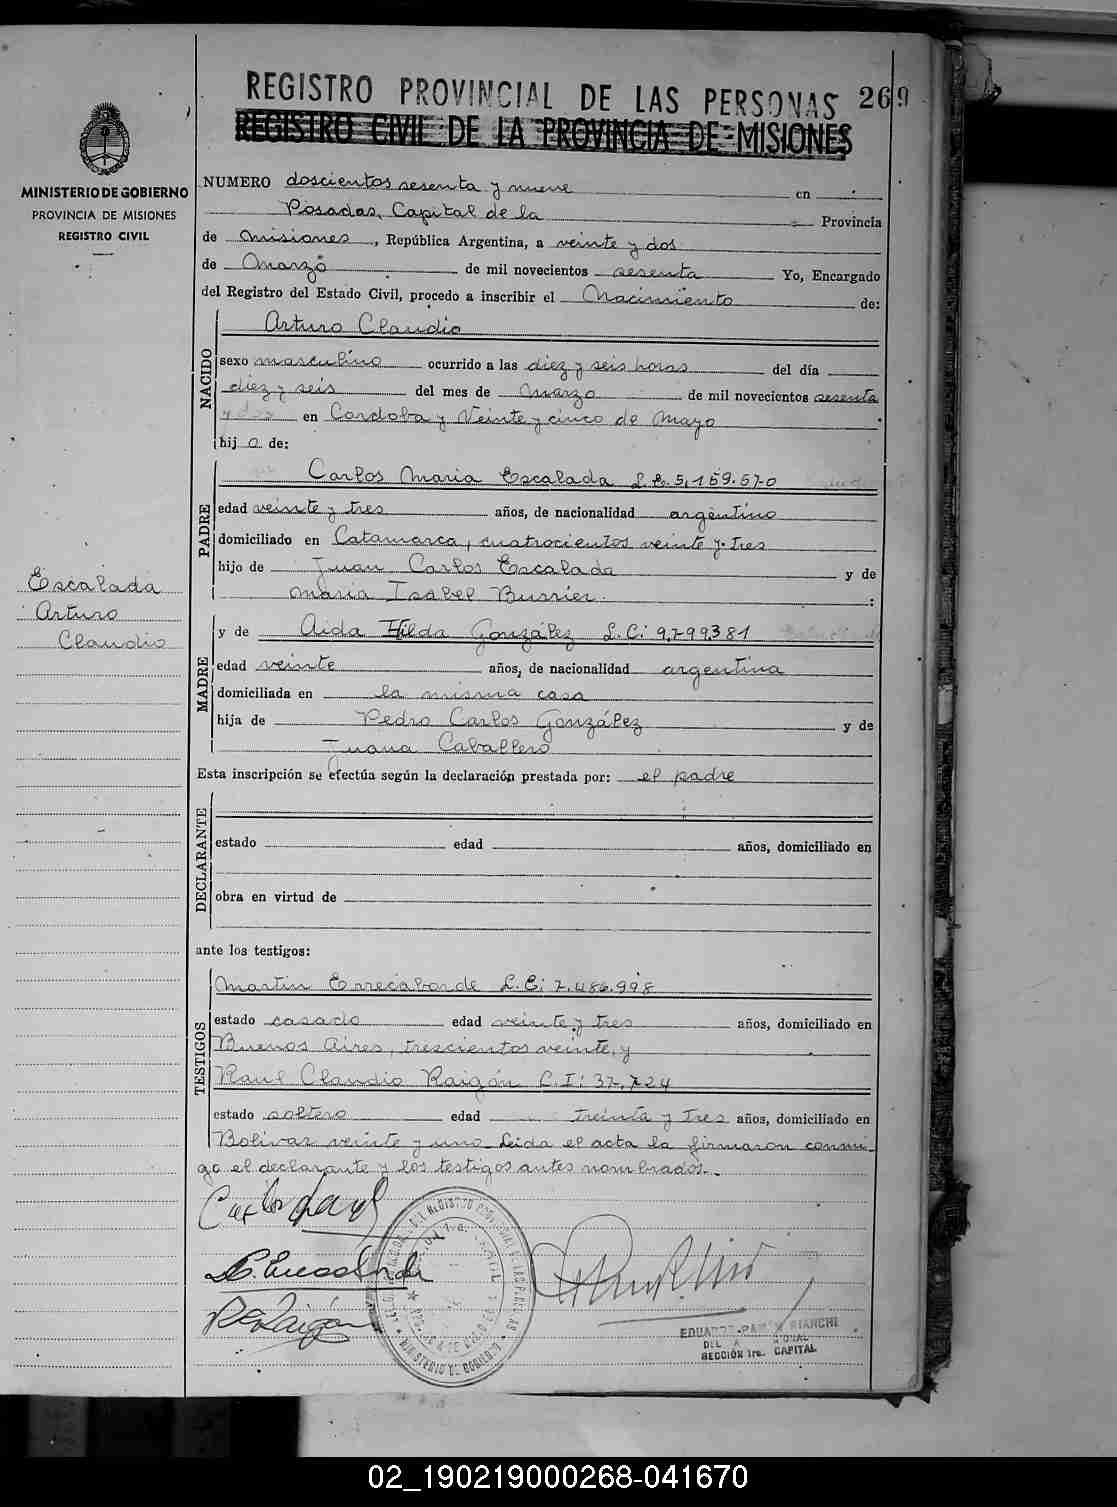 REGISTRO PROVINCIAL DE LAS PERSONAS 269
REGISTRO CIVIL DE LA PROVINCIA DE MISIONES
MINISTERIO DE GOBIERNO
PROVINCIA DE MISIONES
REGISTRO CIVIL
NUMERO doscientos sesenta y nueve en
Posadas, Capital de la Provincia
de Misiones, República Argentina, a veinte y dos
de Marzo de mil novecientos sesenta Yo, Encargado
del Registro del Estado Civil, procedo a inscribir el Nacimiento de:
NACIDO
Arturo Claudio
sexo masculino ocurrido a las diez y seis horas del día
diez y seis del mes de Marzo de mil novecientos sesenta
y dos en Cordoba y Veinte y cinco de Mayo
hijo de:
PADRE
Carlos Maria Escalada L.E. 5.159.570
edad veinte y tres años, de nacionalidad argentino
domiciliado en Catamarca, cuatrocientos veinte y tres
hijo de Juan Carlos Escalada y de
Maria Isabel Burrier. :
Escalada
Arturo
Claudio
MADRE
y de Aida Hilda González L.C: 9.799.381
edad veinte años, de nacionalidad argentina
domiciliada en la misma casa
hija de Pedro Carlos González y de
Juana Caballero
Esta inscripción se efectúa según la declaración prestada por: el padre
DECLARANTE
estado edad años, domiciliado en
obra en virtud de
ante los testigos:
TESTIGOS
Martin Errecaborde L.E: 7.486.998
estado casado edad veinte y tres años, domiciliado en
Buenos Aires, trescientos veinte, y
Raul Claudio Raigón C.I: 37.724
estado soltero edad treinta y tres años, domiciliado en
Bolivar veinte y uno. Leida el acta la firmaron conmi-
go el declarante y los testigos antes nombrados.
EDUARDO RAMÓN BIANCHI
SECCIÓN 1ra. CAPITAL
02_190219000268-041670